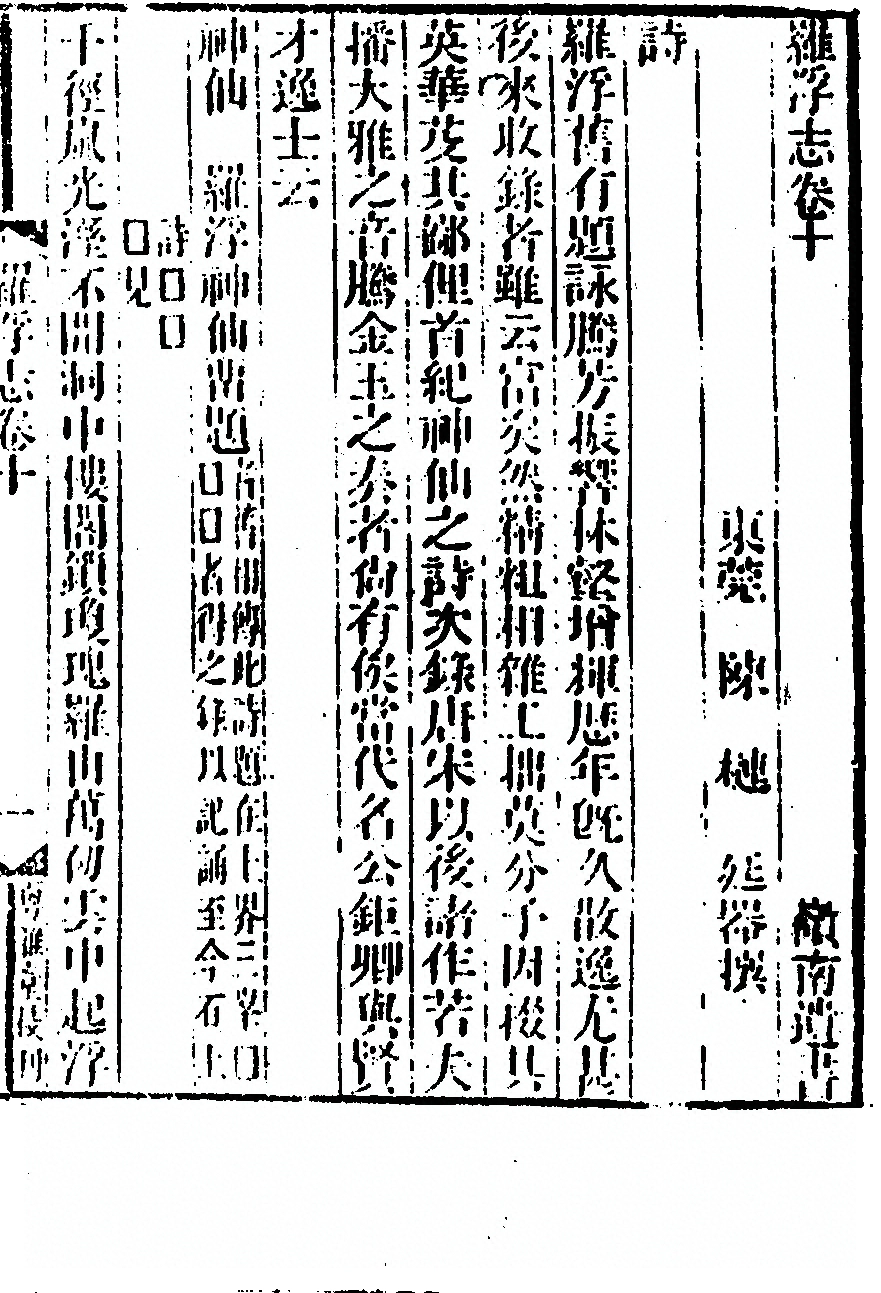 羅浮志卷十 嶺南遺書
東莞 陳槤 琴軒撰
詩
羅浮舊有題詠騰芳振響林壑增輝歷年旣久散逸尤甚
後來收錄者雖云富矣然精粗相雜工拙莫分予因掇其
英華芟其鄙俚首紀神仙之詩次錄唐宋以後諸作若夫
播大雅之音騰金玉之奏者尙有俟當代名公鉅卿與賢
才逸士云
神仙 羅浮神仙留題 相傳此詩題在上界三峯□
□□者得之年以記誦至今石上
詩□□
□見
千徑嵐光溼不開洞中樓閣鎖瓊瑰羅山萬仞雲中起浮
羅浮志卷十 一 粵雅堂校刊